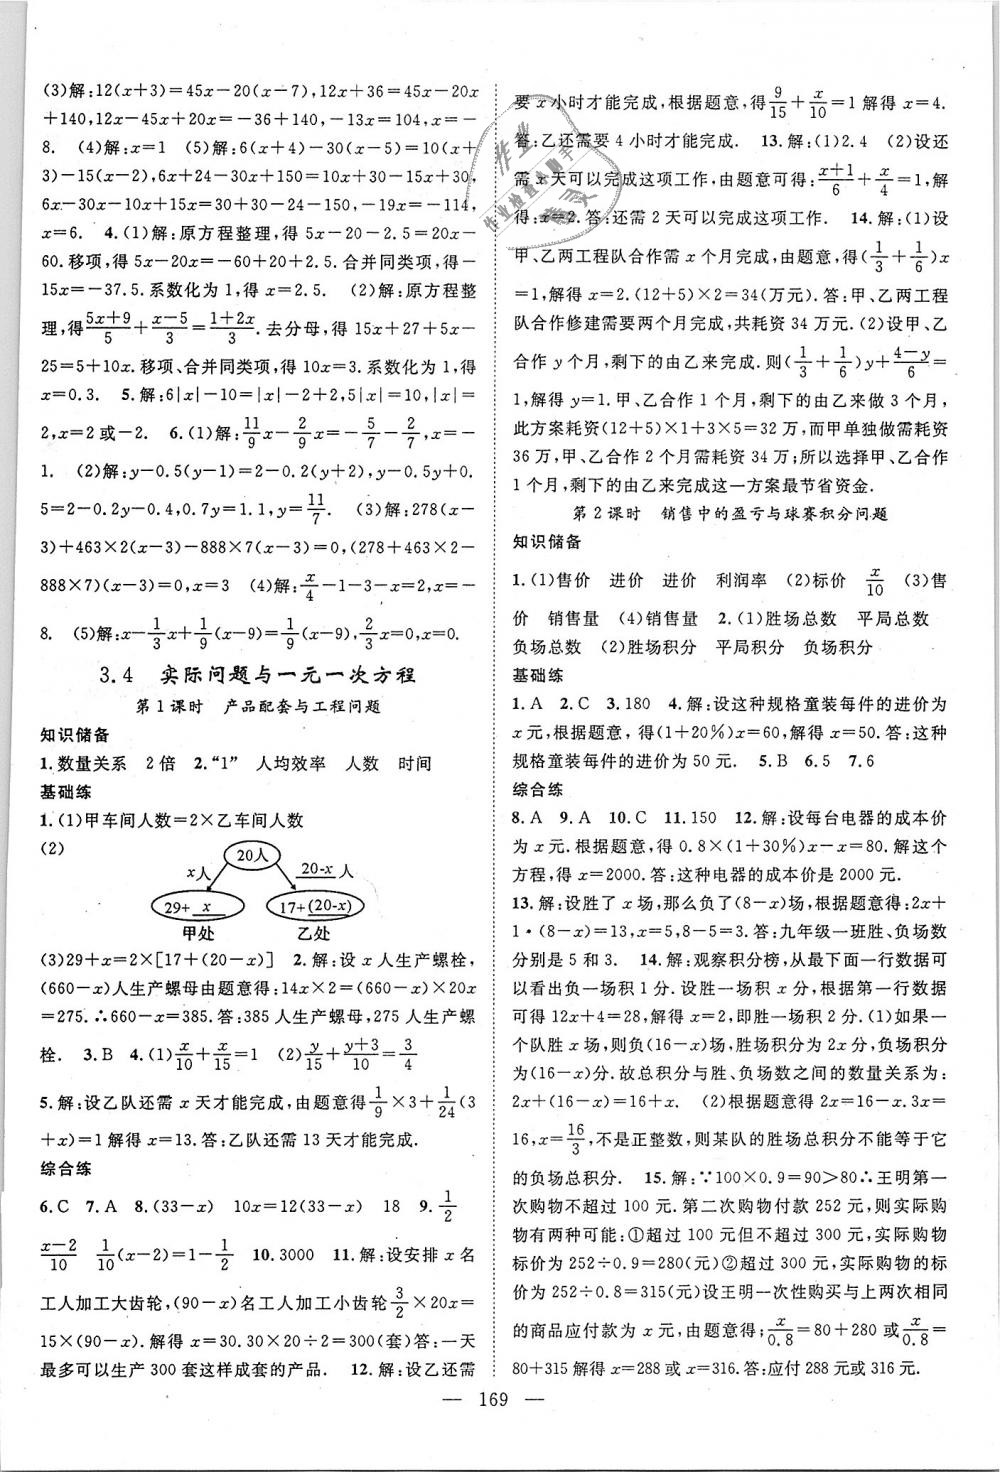 (3)解:12(x+3)=45x-20(x-7),12x+36=45x-20x
+140,12x-45x+20x=-36+140,-13x=104,x=-
8. (4)解:x=1 (5)解:6(x+4)-30(x-5)=10(x+
3)-15(x-2),6x+24-30x+150=10x+30-15x+30,
6x-30x-10x+15x=30+30-24-150,-19x=-114,
x=6. 4.(1)解:原方程整理,得 5x-20-2.5=20x-
60.移项,得 5x-20x=-60+20+2.5.合并同类项,得-
15x=-37.5.系数化为 1,得 x=2.5. (2)解:原方程整
理,得(5x+9)/5+(x-5)/3=(1+2x)/3.去分母,得 15x+27+5x-
25=5+10x.移项、合并同类项,得 10x=3.系数化为 1,得
x=0.3. 5.解:6|x|-10=|x|-2+2,5|x|=10,|x|=
2,x=2 或-2. 6.(1)解:11/9x-2/9x=-5/7-2/7,x=-
1. (2)解:y-0.5(y-1)=2-0.2(y+2),y-0.5y+0.
5=2-0.2y-0.4,0.7y=1.1,y=11/7. (3)解:278(x-
3)+463×2(x-3)-888×7(x-3)=0,(278+463×2-
888×7)(x-3)=0,x=3 (4)解:x/4-1-3-x=2,x=-
8. (5)解:x-1/3x+1/9(x-9)=1/9(x-9),2/3x=0,x=0.
3.4 实际问题与一元一次方程
第 1 课时 产品配套与工程问题
知识储备
1.数量关系 2 倍 2.“1” 人均效率 人数 时间
基础练
1.(1)甲车间人数=2×乙车间人数
(2)
20人
x人 20-x 人
29+ x 17+(20-x)
甲处 乙处
(3)29+x=2×[17+(20-x)] 2.解:设 x 人生产螺栓,
(660-x)人生产螺母由题意得:14x×2=(660-x)×20x
=275.∴660-x=385.答:385 人生产螺母,275 人生产螺
栓. 3.B 4.(1)x/10+x/15=1 (2)y/15+(y+3)/10=3/4
5.解:设乙队还需 x 天才能完成,由题意得1/9×3+1/24(3
+x)=1 解得 x=13.答:乙队还需 13 天才能完成.
综合练
6.C 7.A 8.(33-x) 10x=12(33-x) 18 9.1/2
(x-2)/10 1/10(x-2)=1-1/2 10.3000 11.解:设安排 x 名
工人加工大齿轮,(90-x)名工人加工小齿轮3/2×20x=
15×(90-x).解得 x=30.30×20÷2=300(套)答:一天
最多可以生产 300 套这样成套的产品. 12.解:设乙还需
要 x 小时才能完成,根据题意,得9/15+x/10=1 解得 x=4.
答:乙还需要 4 小时才能完成. 13.解:(1)2.4 (2)设还
需 x 天可以完成这项工作,由题意可得:(x+1)/6+x/4=1,解
得:x=2.答:还需 2 天可以完成这项工作. 14.解:(1)设
甲、乙两工程队合作需 x 个月完成,由题意,得(1/3+1/6)x
=1,解得 x=2.(12+5)×2=34(万元).答:甲、乙两工程
队合作修建需要两个月完成,共耗资 34 万元.(2)设甲、乙
合作 y 个月,剩下的由乙来完成.则(1/3+1/6)y+(4-y)/6=
1,解得 y=1.甲、乙合作 1 个月,剩下的由乙来做 3 个月,
此方案耗资(12+5)×1+3×5=32 万,而甲单独做需耗资
36 万,甲、乙合作 2 个月需耗资 34 万;所以选择甲、乙合作
1 个月,剩下的由乙来完成这一方案最节省资金.
第 2 课时 销售中的盈亏与球赛积分问题
知识储备
1.(1)售价 进价 进价 利润率 (2)标价 x/10 (3)售
价 销售量 (4)销售量 2.(1)胜场总数 平局总数
负场总数 (2)胜场积分 平局积分 负场积分
基础练
1.A 2.C 3.180 4.解:设这种规格童装每件的进价为
x 元,根据题意,得(1+20%)x=60,解得 x=50.答:这种
规格童装每件的进价为 50 元. 5.B 6.5 7.6
综合练
8.A 9.A 10.C 11.150 12.解:设每台电器的成本价
为 x 元.根据题意,得 0.8×(1+30%)x-x=80.解这个方
程,得 x=2000.答:这种电器的成本价是 2000 元.
13.解:设胜了 x 场,那么负了(8-x)场,根据题意得:2x+
1·(8-x)=13,x=5,8-5=3.答:九年级一班胜、负场数
分别是 5 和 3. 14.解:观察积分榜,从最下面一行数据可
以看出负一场积 1 分.设胜一场积 x 分,根据第一行数据
可得 12x+4=28,解得 x=2,即胜一场积 2 分.(1)如果一
个队胜 x 场,则负(16-x)场,胜场积分为 2x 分,负场积分
为(16-x)分.故总积分与胜、负场数之间的数量关系为:
2x+(16-x)=16+x. (2)根据题意得 2x=16-x.3x=
16,x=16/3,不是正整数,则某队的胜场总积分不能等于它
的负场总积分. 15.解:∵100×0.9=90>80∴王明第一
次购物不超过 100 元.第二次购物付款 252 元,则实际购
物有两种可能:①超过 100 元但不超过 300 元,实际购物
标价为 252÷0.9=280(元)②超过 300 元,实际购物的标
价为 252÷0.8=315(元)设王明一次性购买与上两次相同
的商品应付款为 x 元,由题意得;x/0.8=80+280或x/0.8=
80+315 解得 x=288 或 x=316.答:应付 288 元或 316 元.
— 169 —